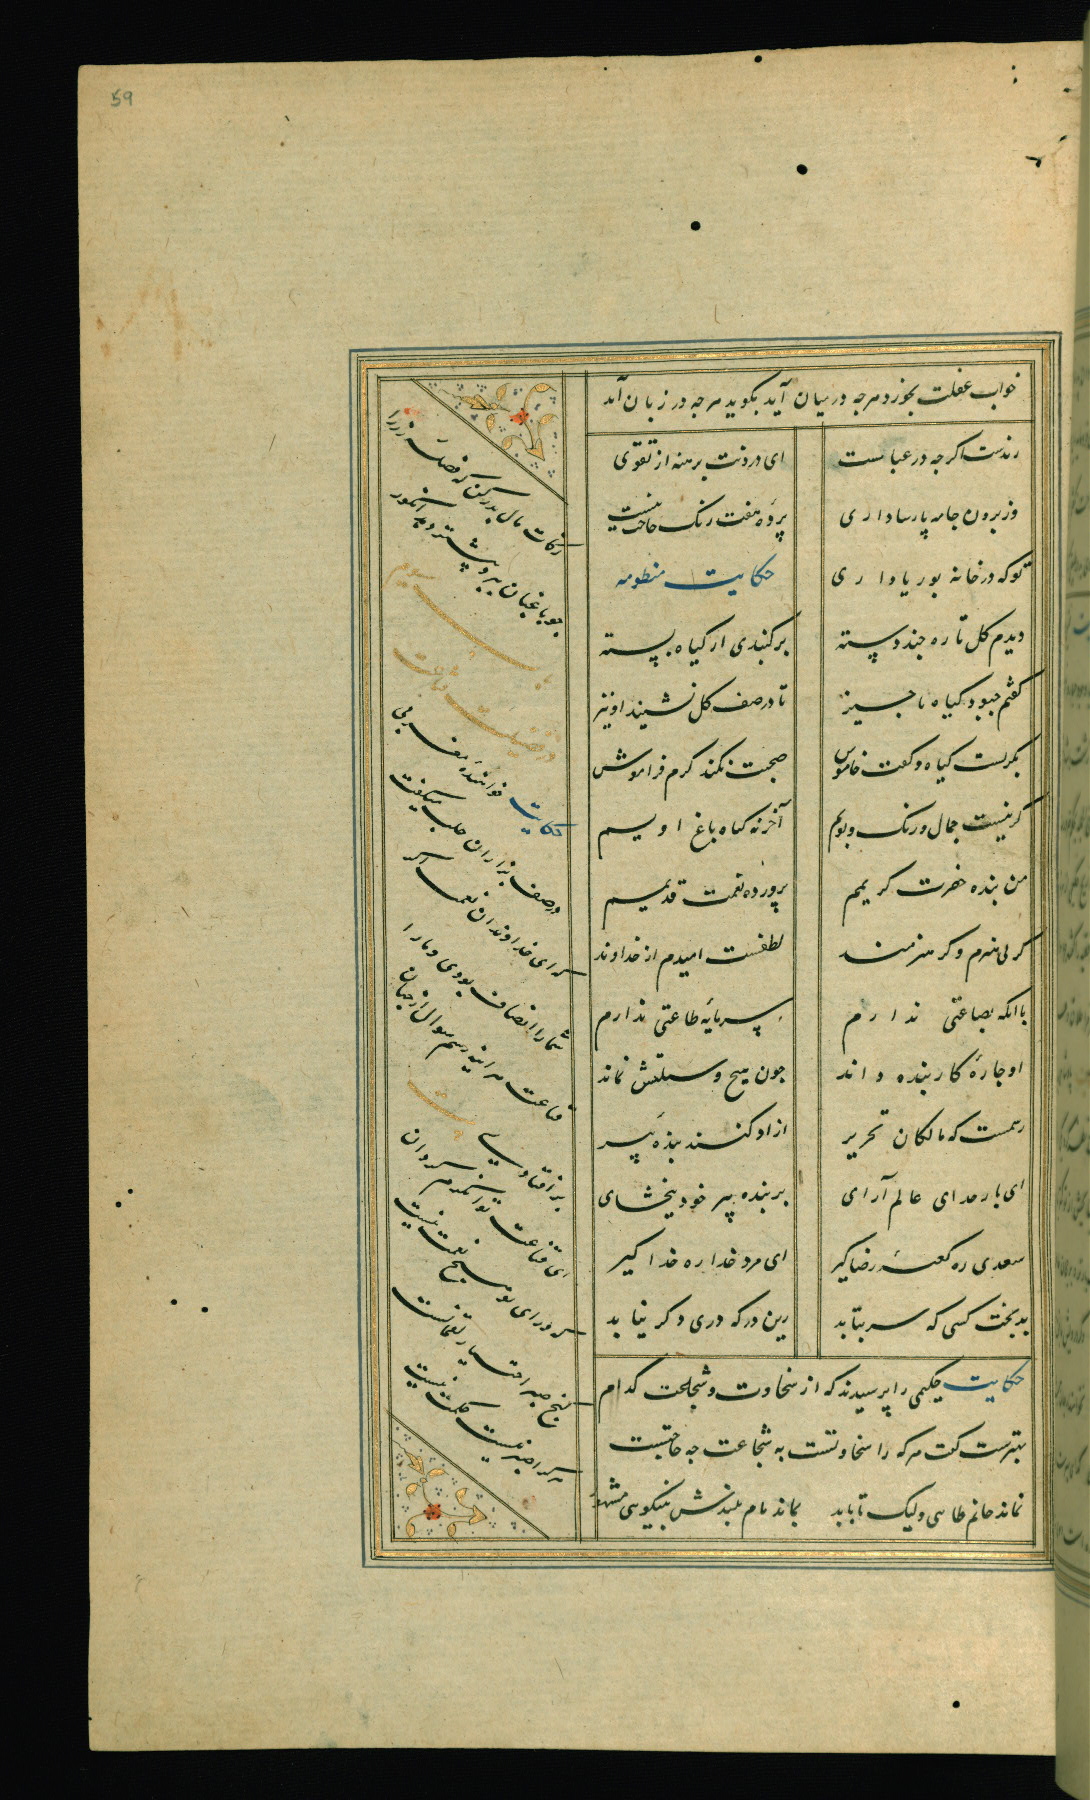 59
خواب غفلت بخورد و هرچه در میان آید بگوید هرچه در زبان آید
رندست اگرچه در عباست
ای درونت برهنه از تقوی
وز برون جامه پارسا داری
پردهٔ هفت رنگ حاجت نیست
توکه در خانه بوریا داری
حکایت منظومه
دیدم گل تازه چند دسته
بر گنبدی از گیاه بسته
گفتم چبود گیاه ناچیز
تا در صف گل نشیند او نیز
بگریست گیاه و گفت خاموش
صحبت نکند کرم فراموش
گر نیست جمال و رنگ و بویم
آخر نه گیاه باغ اویم
من بنده حضرت کریمم
پرورده نعمت قدیمم
گر بی هنرم و گر هنرمند
لطفست امیدم از خداوند
با آنکه بضاعتی ندارم
سرمایهٔ طاعتی ندارم
او چارهٔ کار بنده داند
چون هیچ وسیلتش نماند
رسمست که مالکان تحریر
ازاد کنند بندهٔ پیر
ای بار خدای عالم آرای
بر بنده پیر خود ببخشای
سعدی ره کعبهٔ رضا گیر
ای مرد خدا ره خدا گیر
بدبخت کسی که سر بتابد
زین در که دری دگر نیابد
حکایت حکیمی را پرسیدند که از سخاوت و شجاعت کدام
بهترست گفت هرکه را سخاوتست به شجاعت چه حاجتست
نماند حاتم طایی ولیک تا بابد بماند نام بلندش بنیکویی مشهور
زکات مال بدر کن که فضلهٔ رز را
چو باغبان ببرد بیشتر دهد انگور
باب سیوم
در فضیلت قناعت
حکایت خواهنده مغربی
در صف بزازان حلب میگفت
که ای خداوندان نعمت اگر
شما را انصاف بودی و ما را
قناعت هر آینه رسم سوال از جهان
برافتادی بیت
ای قناعت توانگرم گردان
که ورای تو هیچ نعمت نیست
گنج صبر اختیار لقمانست
هر کرا صبر نیست حکمت نیست